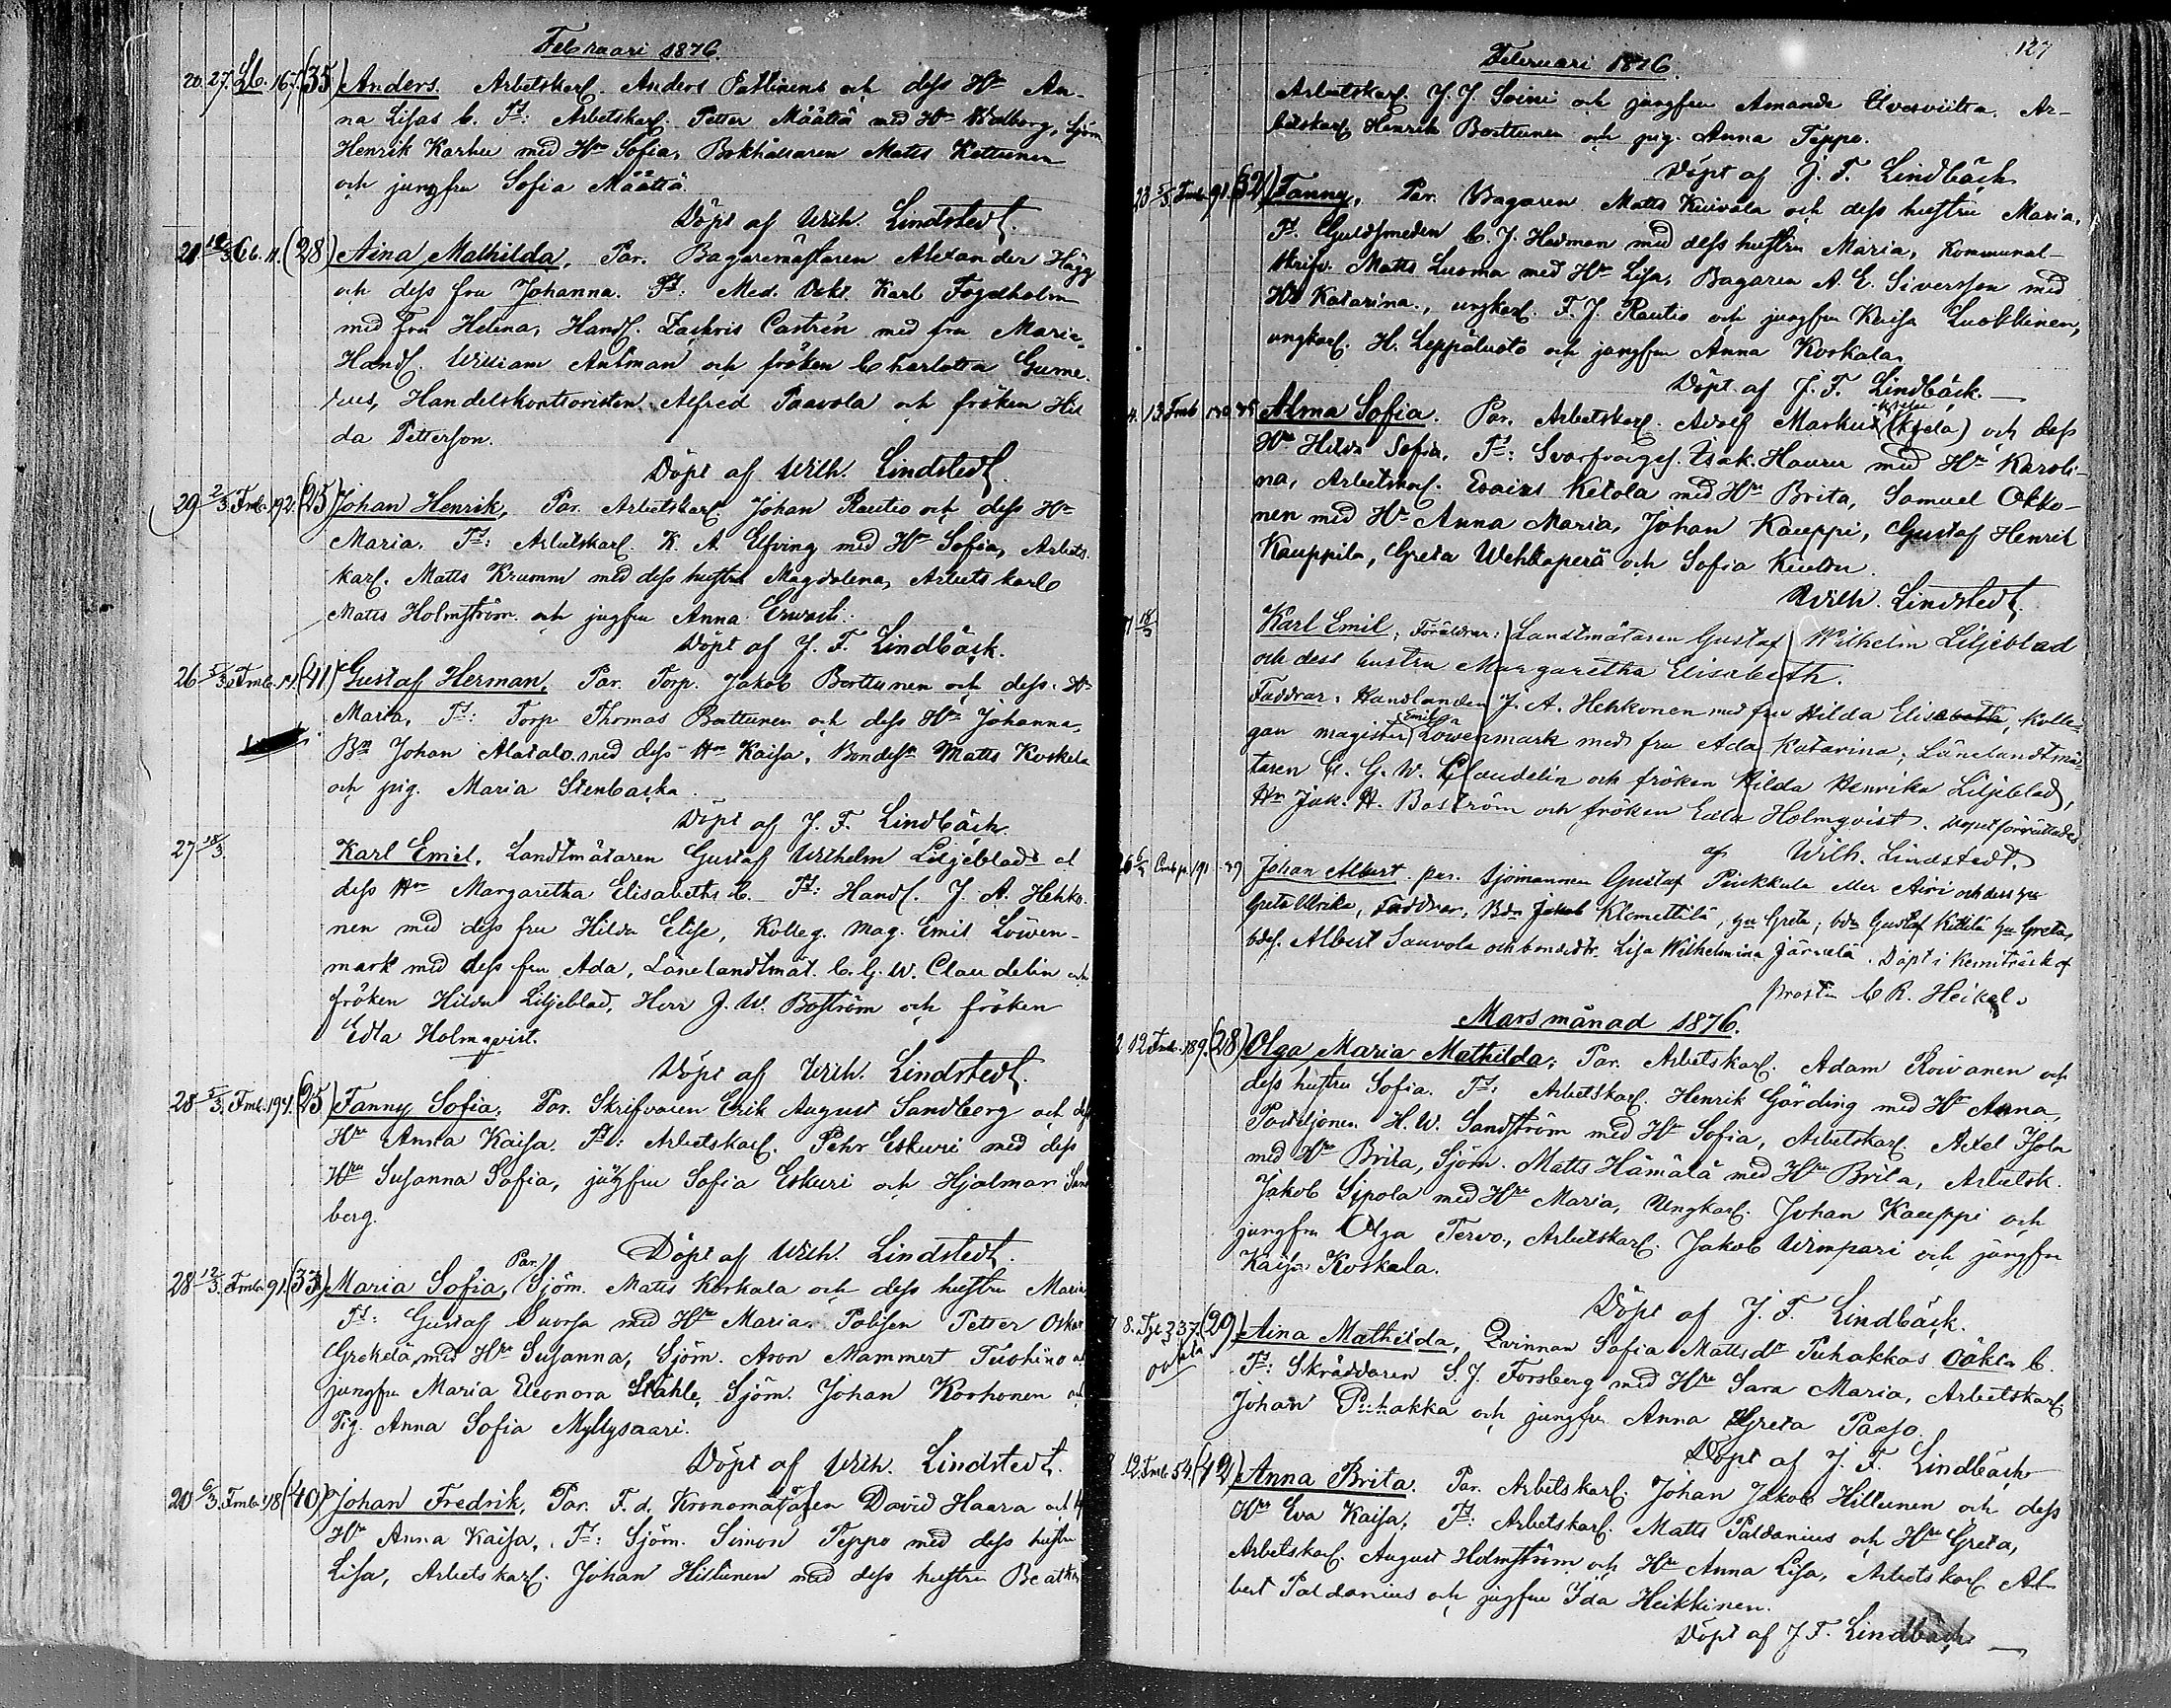 Februari 1876.
20. 27. Lb. 167. (35) Anders. Arbetskarl. Anders Pattinens och dess Hu An-
na Lisas b. Ft: Arbetskarl. Petter Määttä med Hu Walborg, Sjöm
Henrik Karhu med Hu Sofia, Bokhållaren Matts Kettunen
och jungfru Sofia Määttä.
Döpt af Wilh. Lindstedt.
(28) Aina Mathilda, Par. Bagaremästaren Alexander Hägg
och dess fru Johanna. Ft: Med. Dokt. Karl Fogdholm
med fru Helena, Handl. Zachris Castrén med fru Maria,
Handl. William Antman och fröken Charlotta Gume-
rus, Handelskontoristen Alfred Paavola och fröken Hil
da Petterson.
Döpt af Wilh. Lindstedt.
29 2/3. Fmb. 192. (25) Johan Henrik, Par. Arbetskarl Johan Rautio och dess Hu
Maria. Ft: Arbetskarl. K. A. Elfving med Hu Sofia, Arbets-
karl. Matts Krumm med dess hustru Magdalena, Arbetskarl
Matts Holmström och jugfru Anna Erwasti.
Döpt af J. F. Lindbäck.
26 5/3 Fmb. (41) Gustaf Herman, Par. Torp. Jakob Borttunen och dess H
Maria, Ft: Torp Thomas Borttunen och dess Hu Johanna,
Bn Johan Alatalo med dess Hu Kaisa, Bondesn Matts Koskela
och pig. Maria Stenbacka.
Döpt af J. F. Lindbäck.
27 18/3. Karl Emil, Landtmätaren Gustaf Wilhelm Liljeblads o
dess Hu Margaretha Elisabeths b. Ft: Handl. J. A. Hehko-
nen med dess fru Hilda Elise, Kolleg. Mag. Emil Löwen-
mark med dess fru Ada, Länelandtmät. C. G. W. Claudelin och
fröken Hilda Liljeblad, Herr J. W. Boström och fröken
Edla Holmqvist.
Döpt af Wilh. Lindstedt.
28 5/3. Fmb. 194. (25) Fanny Sofia, Par. Skrifvaren Erik August Sandberg och dess
Hru Anna Kaisa. Ft: Arbetskarl. Pehr Eskuri med dess
Hru Susanna Sofia, jungfru Sofia Eskuri och Hjalmar Sand
berg.
Döpt af Wilh. Lindstedt.
28 12/3. Fmb. 91. (33) Maria Sofia, Par. Sjöm. Matts Korkala och dess hustru Maria
Ft: Gustaf Suorsa med Hru Maria. Polisen Petter Oskar
Grekelä med Hru Susanna, Sjöm. Aron Mammert Tuohino o
jungfru Maria Eleonora Ståhle, Sjöm. Johan Korhonen och
Pig. Anna Sofia Myllysaari.
Döpt af Wilh. Lindstedt.
20 6/3. Fmb. 118 (40) Johan Fredrik, Par. F. d. Kronomätaren David Haara och
Hru Anna Kaisa, Ft: Sjöm. Simon Teppo med dess hustru
Lisa, Arbetskarl. Johan Hiltunen med dess hustru Beatha
127
Februari 1876.
Arbetskarl J. J. Soini och jungfru Amanda Ar-
betskarl Henrik Borttunen och pig. Anna Teppo.
Döpt af J. F. Lindbäck
23 5/3. Fmb. 91. (32) Fanny, Par. Bagaren Matts Kuivala och dess hustru Maria,
Ft. Guldsmeden C. J. Hedman med dess hustru Maria, Kommunal-
skrifv. Matts Luoma med Hu Lisa, Bagaren A. E. Siversson med
Hu Katarina., ungkarl. F. J. Rautio och jungfru Kaisa Luokkinen,
ungkarl. H. Leppäluoto och jungfru Anna Koskala.
Döpt af J. F. Lindbäck.
4. 13. Fmb. Alma Sofia. Par. Arbetskarl. Adolf Markus och dess
Hu Hilda Sofia. Ft: Svarfvaregef. Isak Hauru med Hu Karoli-
na, Arbetskarl. Esaias Ketola med Hu Brita, Samuel Okko-
nen med Hu Anna Maria, Johan Kauppi, Gustaf Henrik
Kauppila, Greta Wehkaperä och Sofia
Wilh. Lindstedt.
18/3 Karl Emil, Föräldrar: Landtmätaren Gustaf Wilhelm Liljeblad
och dess hustru Margaretha Elisabeth.
Faddrar: Handlanden J. A. Hehkonen med fru Hilda Elisabetta, Kolle-
gan magister Emil Löwenmark med fru Ada Katarina, Länelandtmä-
taren C. G. W. Claudelin och fröken Hilda Henrika Liljeblad,
Hr Jak. A. Boström och fröken Edla Holmqvist. Dopet förrättades
af Wilh. Lindstedt.
Johan Albert. par. sjömannen Gustaf Pinkkula eller Airi och dess hu
Greta Ulrika, Faddrar, Bdn Jakob Klemettilä, hu Greta; bdn Gustaf Kittilä hu Greta,
bdes. Albert Sauvola och bondedtr. Lisa Wilhelmina Järvelä. Döpt i Kemiträsk af
Prosten C R. Heikel.
Mars månad 1876.
2 12 Fmb. 189. (28) Olga Maria Mathilda; Par. Arbetskarl. Adam Roivanen och
dess hustru Sofia. Ft: Arbetskarl. Henrik Gärding med Hu Anna,
Postiljonen H. W. Sandström med Hu Sofia, Arbetskarl. Axel Isola
med Hu Brita, Sjöm. Matts Hämälä med Hru Brita, Arbetsk.
Jakob Sipola med Hru Maria, Ungkarl. Johan Kauppi och
jungfru Olga Tervo, Arbetskarl. Jakob Wimpari och jungfru
Kaisa Koskela.
Döpt af J. F. Lindbäck.
8. 337. (29) Aina Mathilda, Qvinnan Sofia Mattsdr Puhakkas oäkta b.
oäkta
Ft: Skräddaren S. J. Forsberg med Hru Sara Maria, Arbetskarl.
Johan Puhakka och jungfru Anna Greta Paaso.
Döpt af J. F. Lindbäck
12. Fmb. 54. (42) Anna Brita. Par. Arbetskarl. Johan Jakob Hiltunen och dess
Hru Eva Kaisa; Ft: Arbetskarl. Matts Paldanius och Hru Greta,
Arbetskarl. August Holmström och Hu Anna Lisa, Arbetskarl Al-
bert Paldanius och jugfru Ida Heikkinen.
Döpt af J. F. Lindbäck